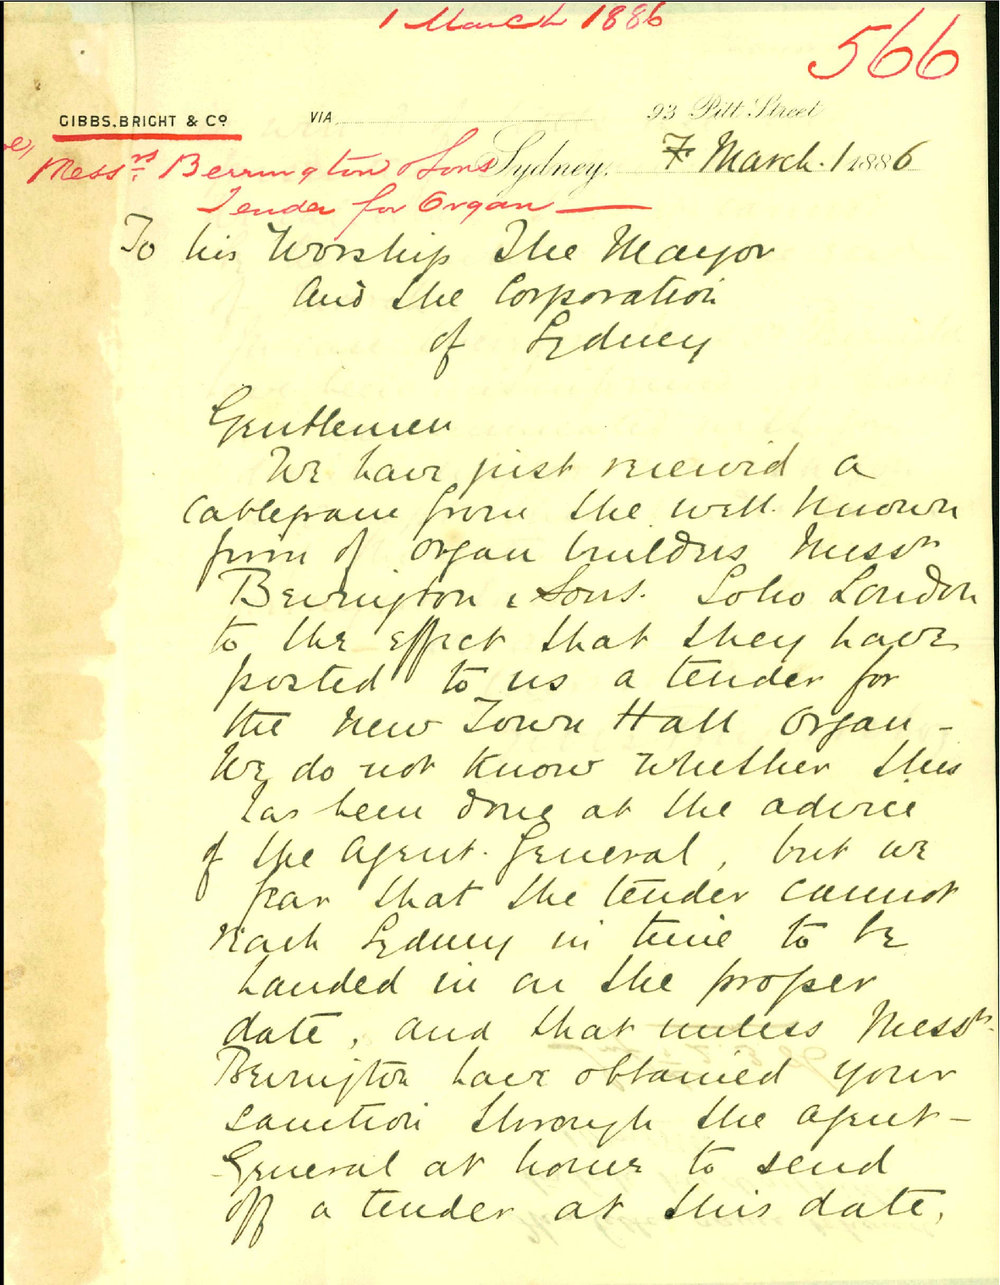 1 March 1886
566
GIBBS, BRIGHT & Co
VIA
93 Pitt Street
Sydney. 7 March. 1 1886
Messrs Berrington & Sons
Tender for Organ
To his Worship The Mayor
and the Corporation
of Sydney
Gentlemen
We have just received a
cablegram from the well known
firm of organ builders Messrs
Berrington & Sons. Soho London
to the effect that they have
posted to us a tender for
the New Town Hall organ -
We do not know whether this
has been done at the advice
of the Agent. General, but we
fear that the tender cannot
reach Sydney in time to be
handed in on the proper
date, and that unless Messrs.
Berrington have obtained your
sanction through the Agent-
General at home to send
off a tender at this date,